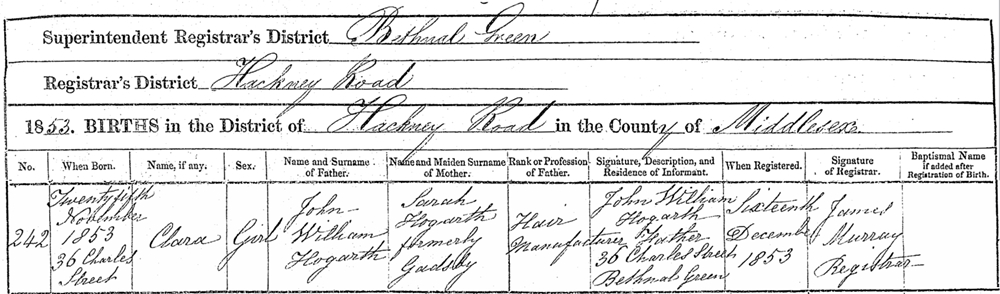 Superintendent Registrar's District Bethnal Green
Registrar's District Hackney Road
1853. BIRTHS in the District of Hackney Road in the County of Middlesex
No. When Born. Name, if any. Sex. Name and Surname of Father. Name and Maiden Surname of Mother. Rank or Profession of Father. Signature, Description, and Residence of Informant. When Registered. Signature of Registrar. Baptismal Name if added after Registration of Birth.
242
Twenty fifth
November
1853
36 Charles
Street
Clara
Girl
John
William
Hogarth
Sarah
Hogarth
formerly
Gadsby
Hair
Manufacturer
John William
Hogarth
Father
36 Charles Street
Bethnal Green
Sixteenth
December
1853
James
Murray
Registrar